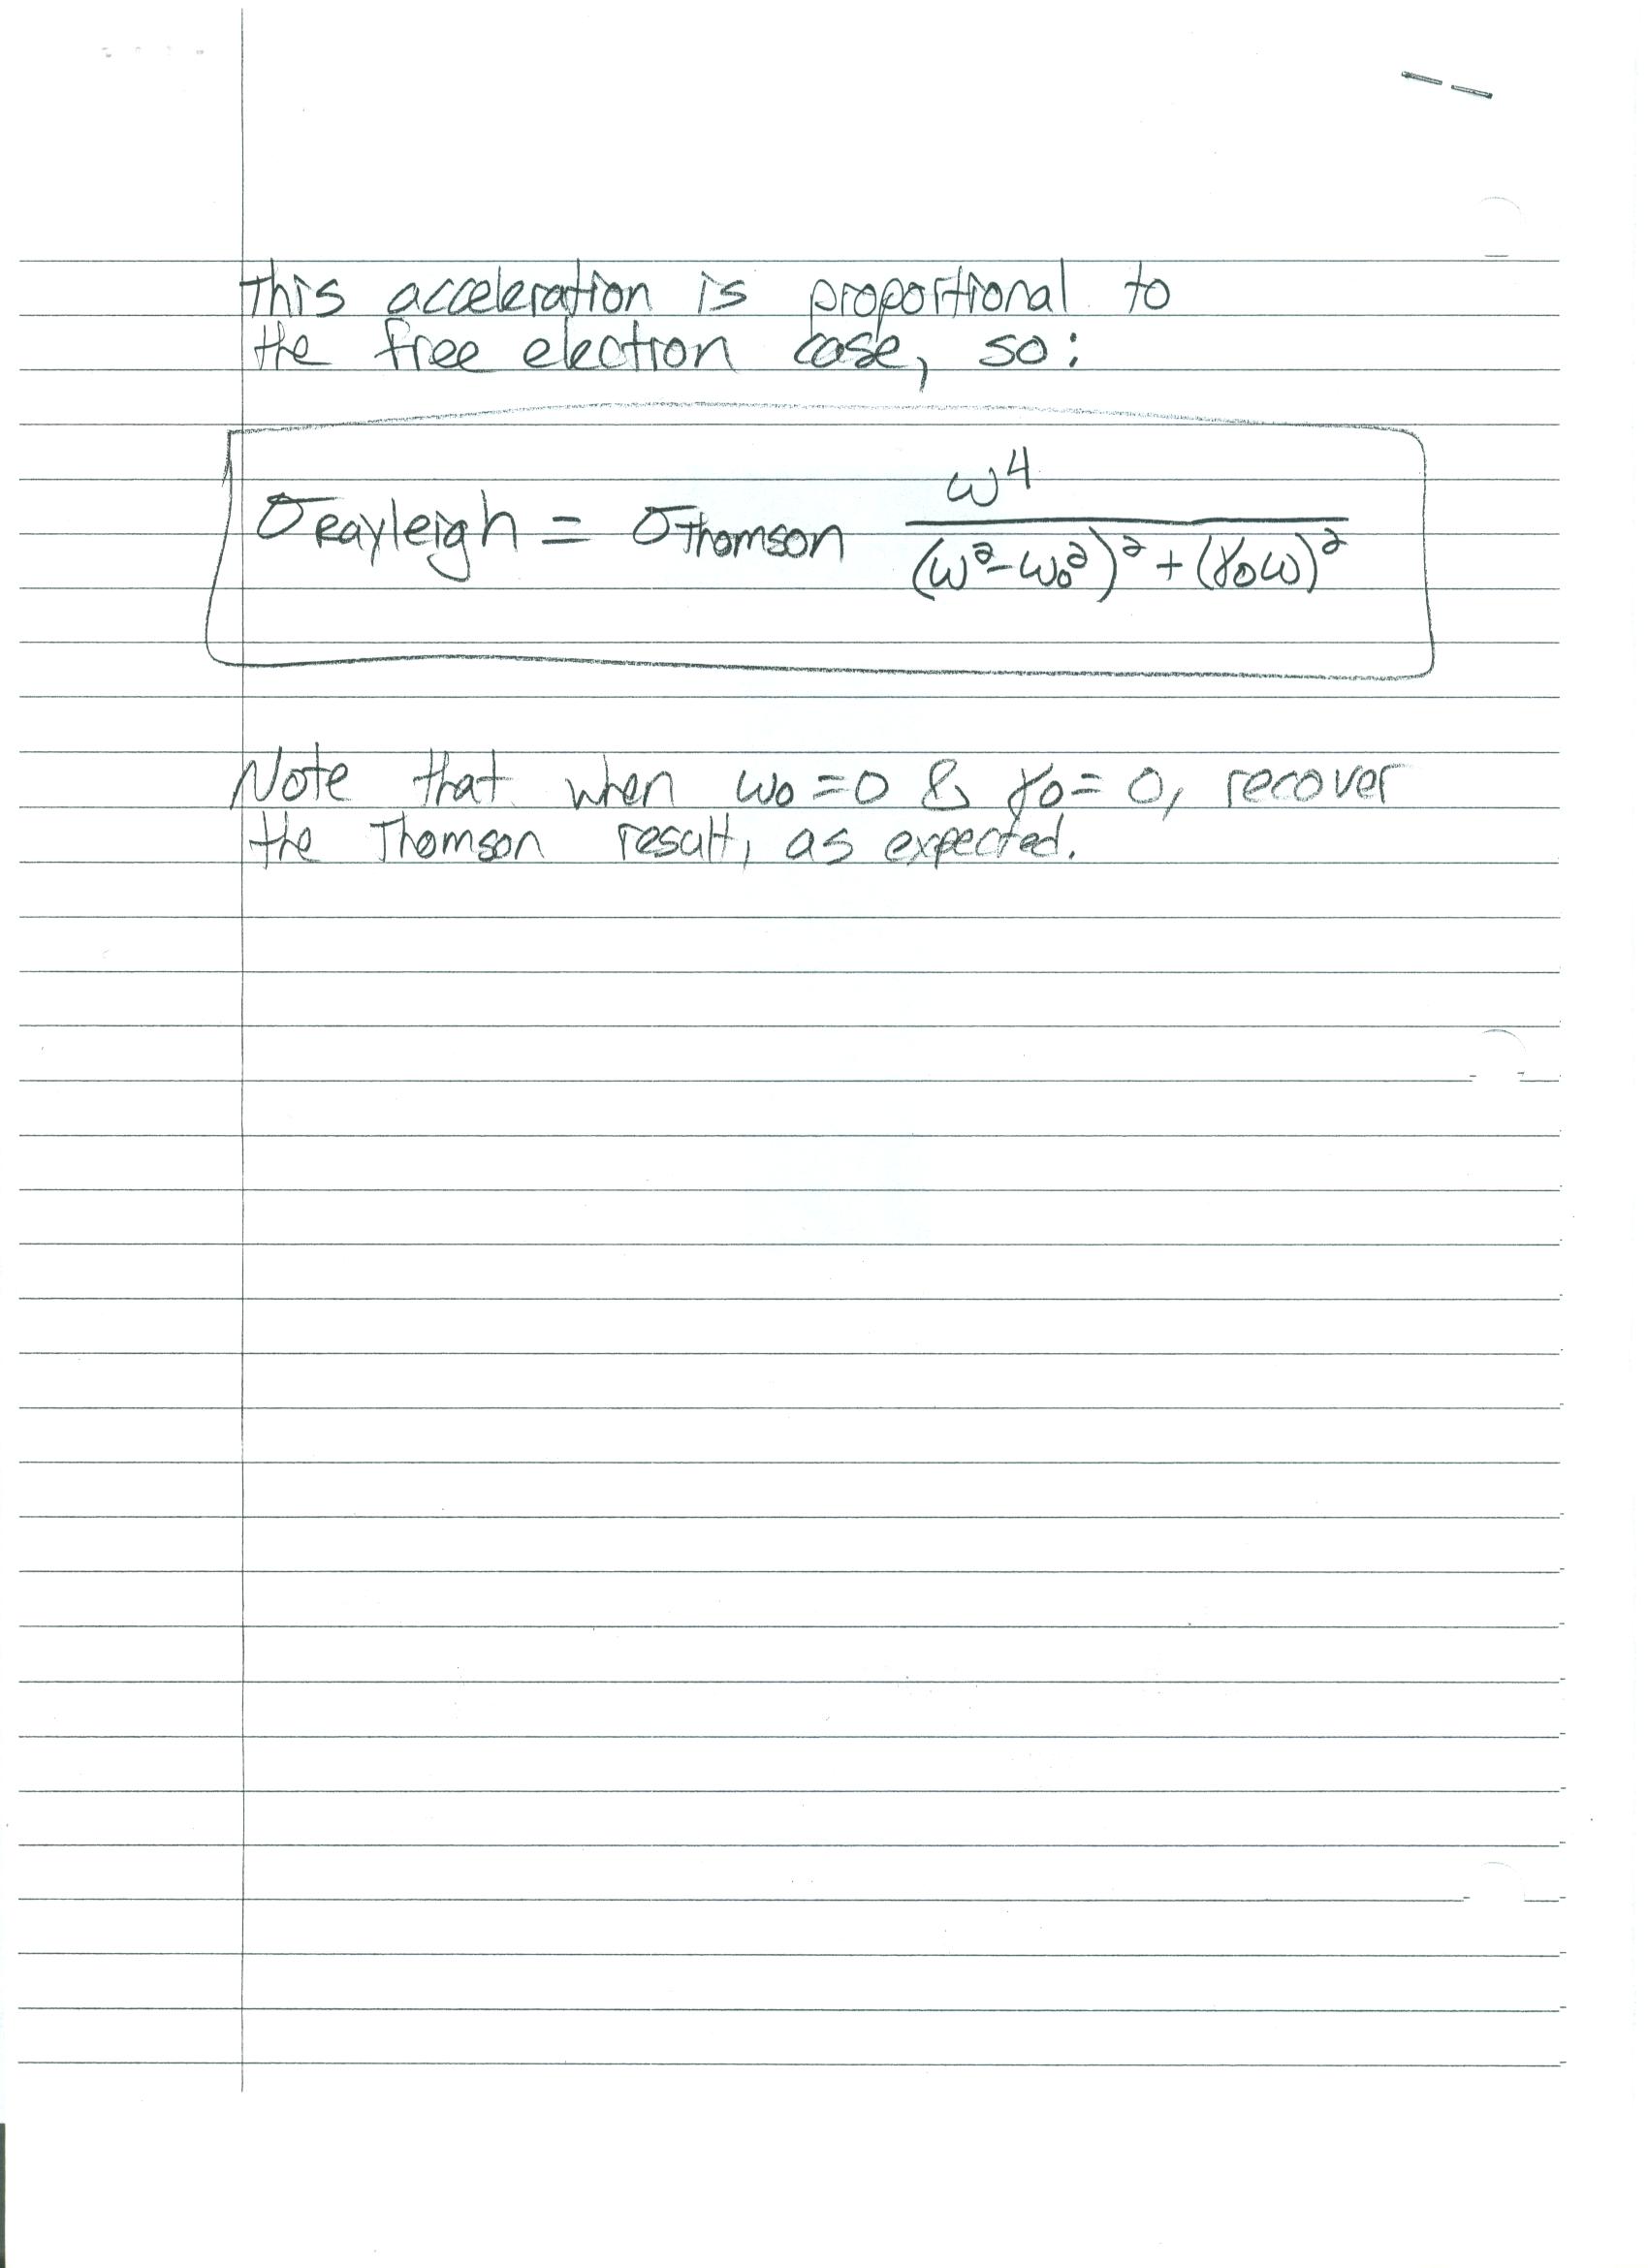 This acceleration is proportional to
the free electron case, so:
σRayleigh = σThomson ω⁴ / ((ω²-ω₀²)² + (γ₀ω)²)
Note that when ω₀=0 & γ₀=0, recover
the Thomson result, as expected.